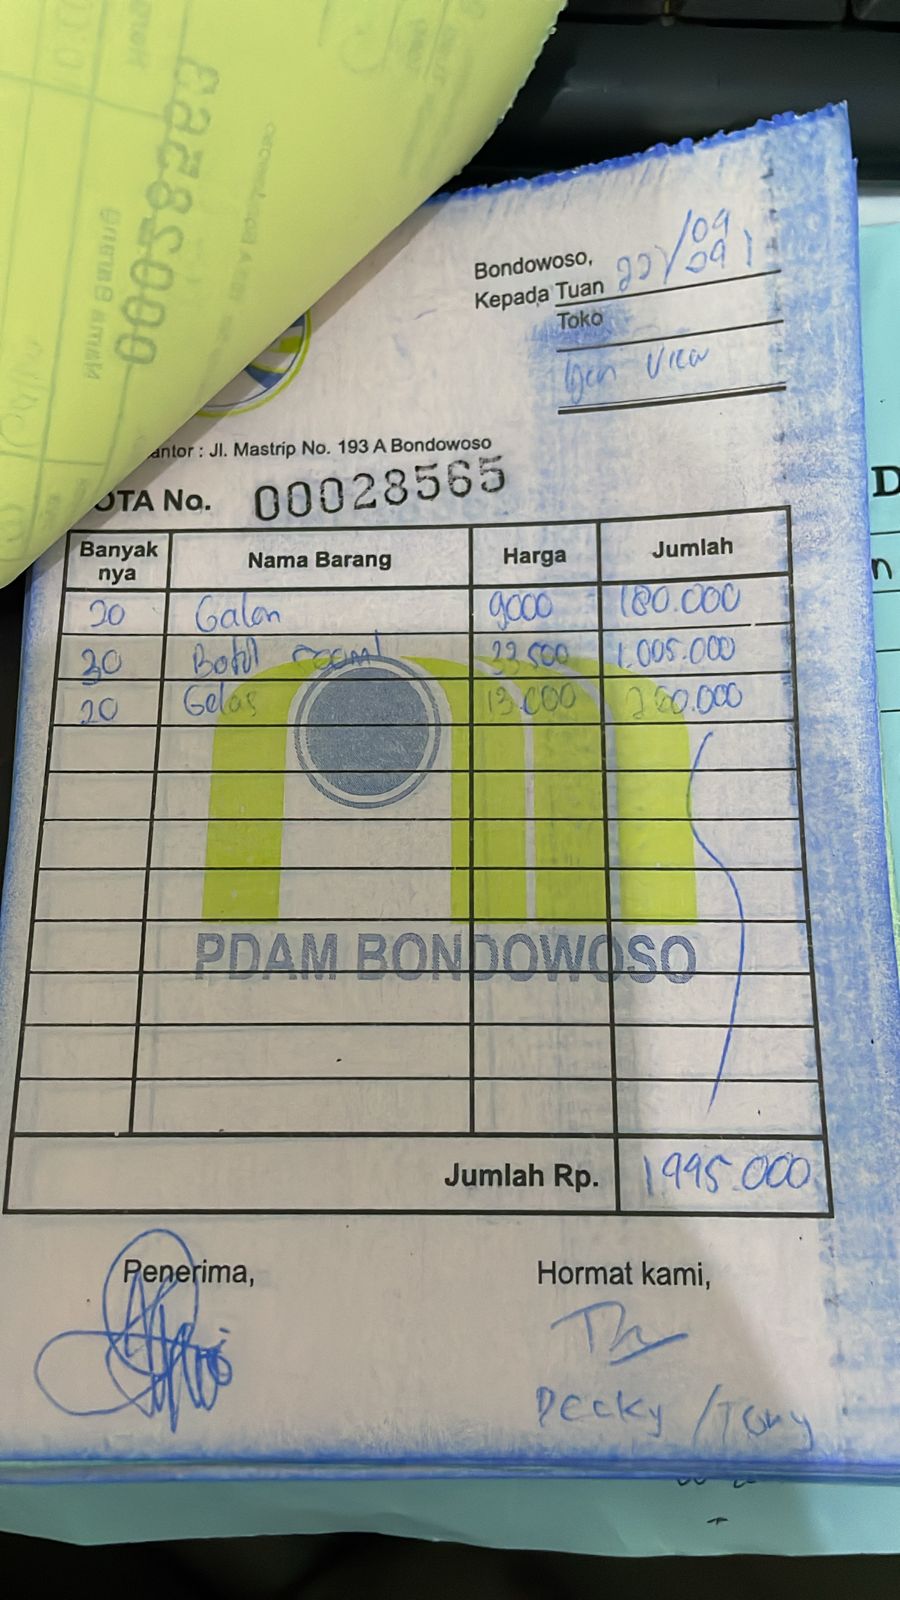 00028563
Bondowoso, 22/09
Kepada Tuan
Toko
View
antor : Jl. Mastrip No. 193 A Bondowoso
OTA No. 00028565
Banyak nya Nama Barang Harga Jumlah
20 Galon 9000 180.000
30 Botol 33.500 1.005.000
20 Gelas 13.000 260.000
PDAM BONDOWOSO
Jumlah Rp. 1995.000
Penerima, Hormat kami,
Decky / Tony